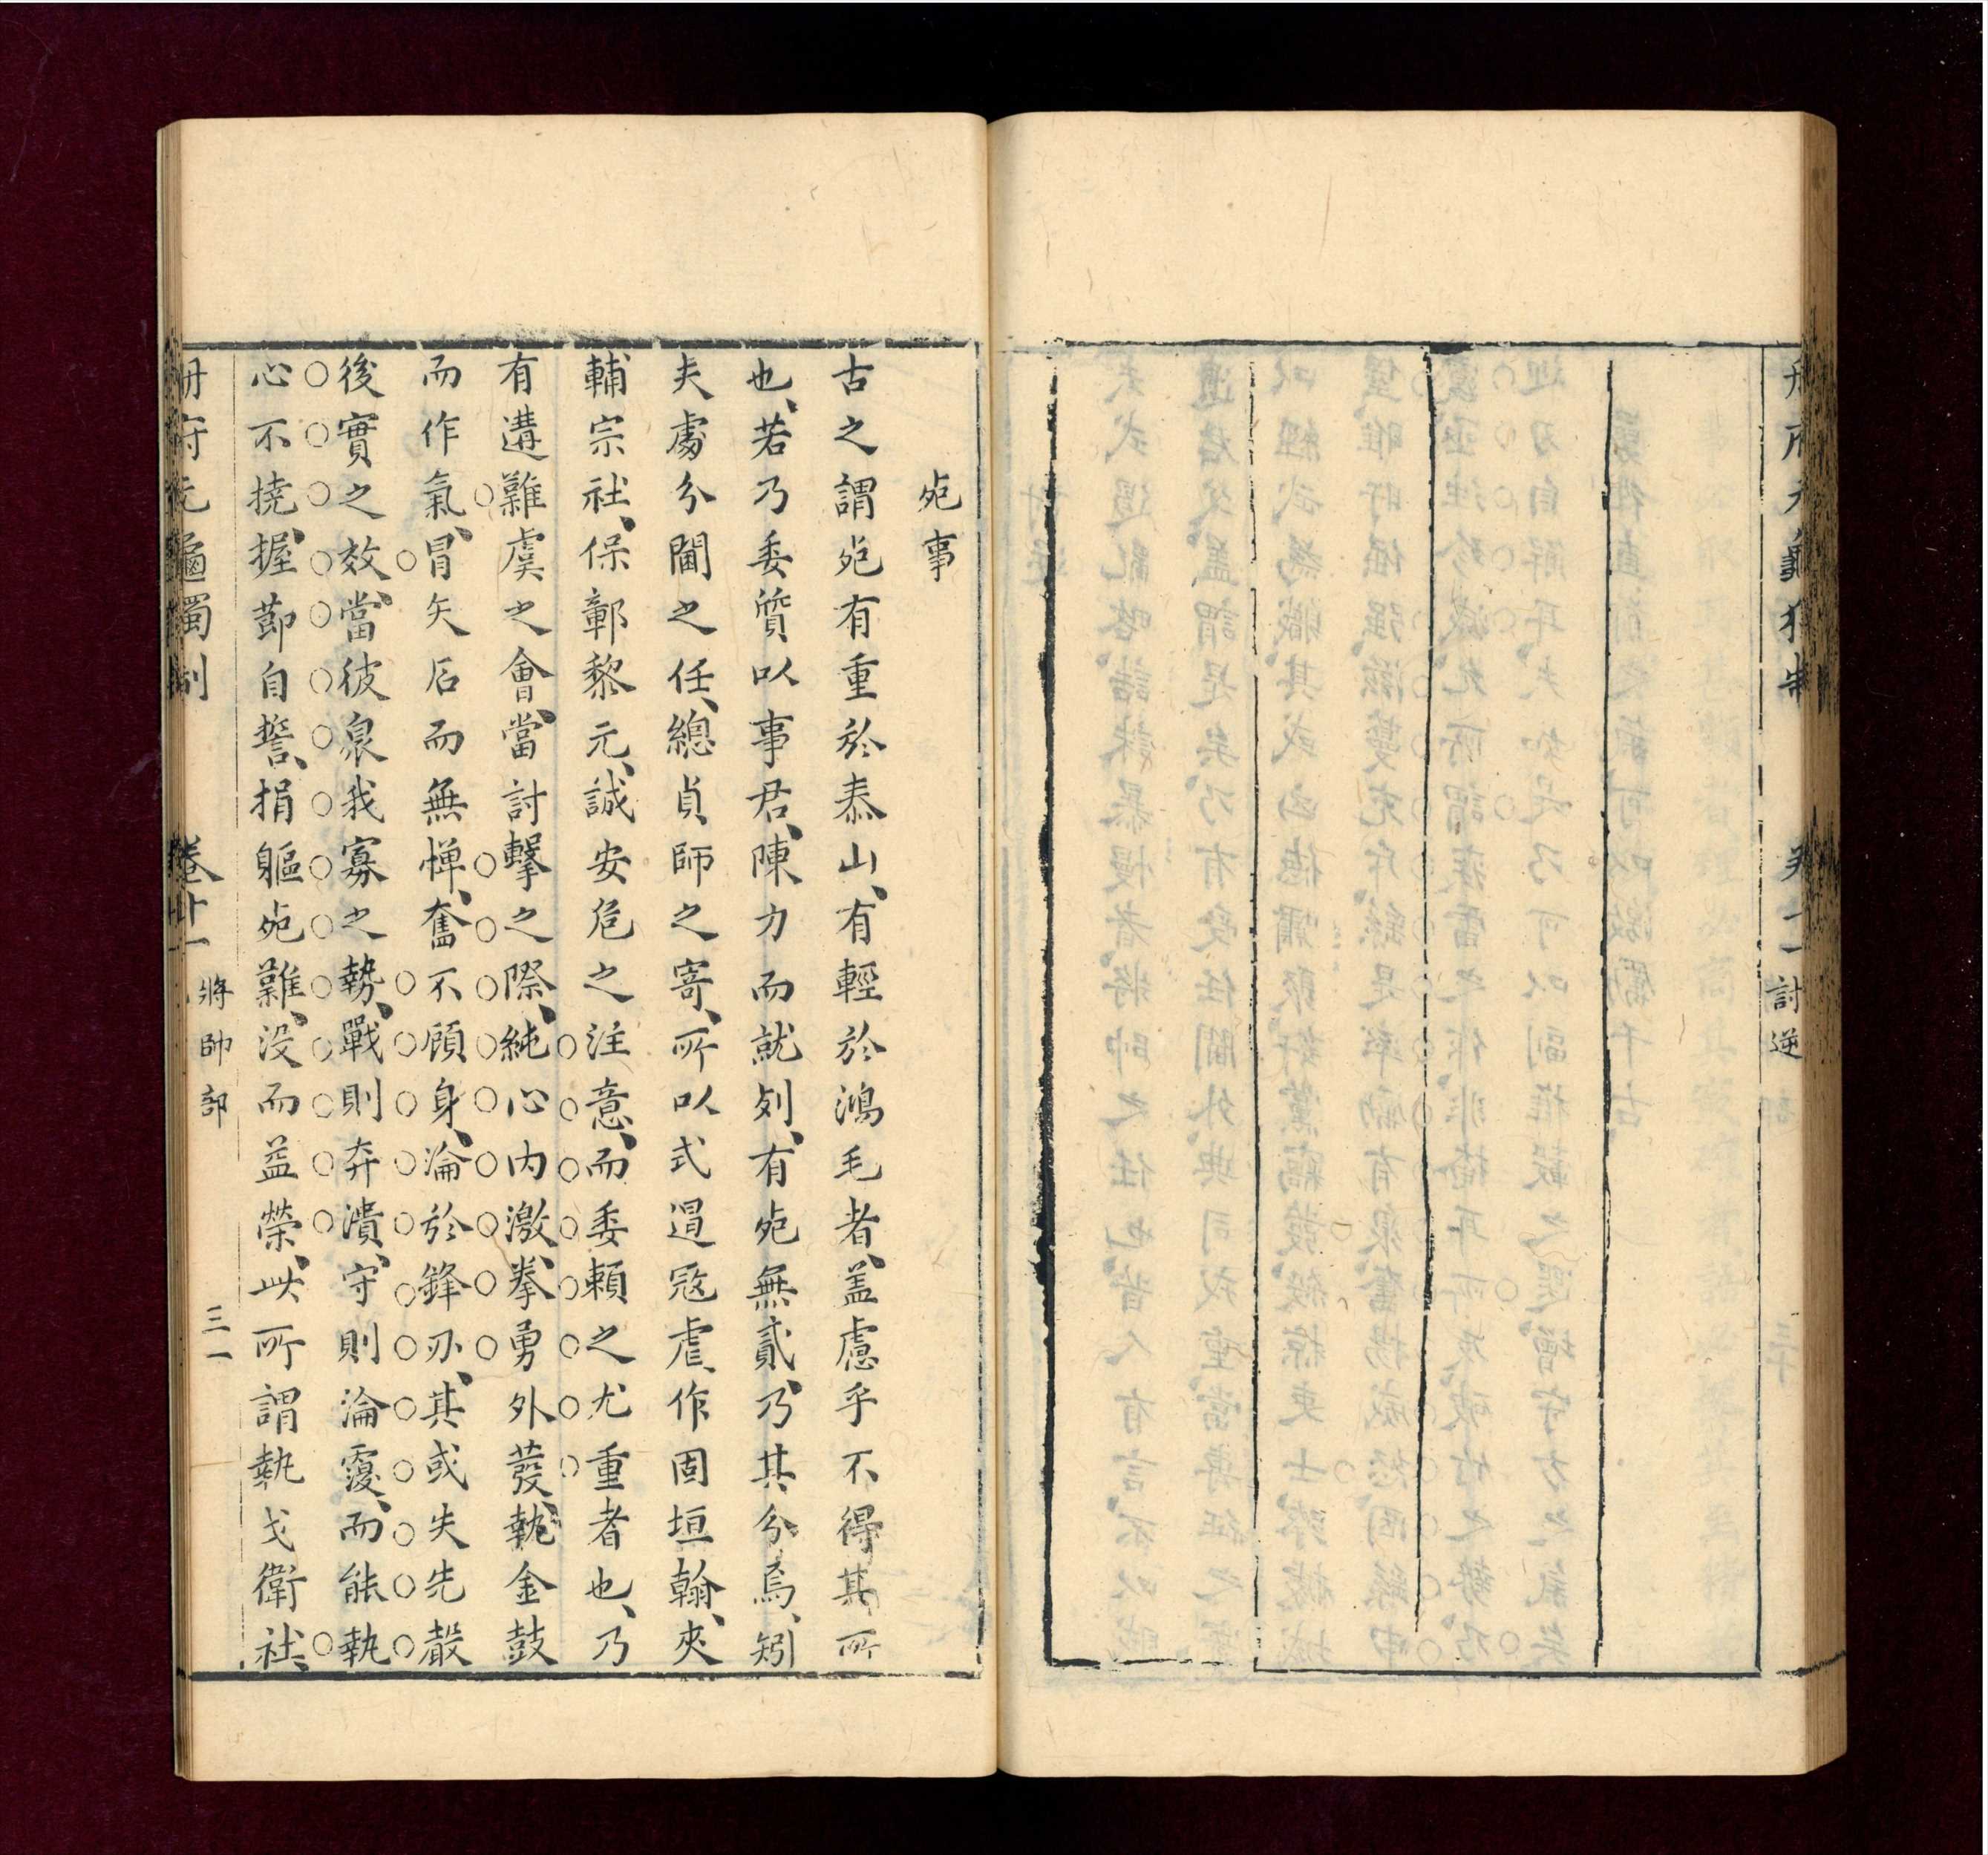 討逆
死事
古之謂死有重於泰山、有輕於鴻毛者、盖慮乎不得其所
也、若乃委質以事君、陳力而就列、有死無貳、乃其分焉、矧
夫處分閫之任、總貞師之寄、所以式遏寇虐、作固垣翰、夾
輔宗社、保鄣黎元、誠安危之注意、而委頼之尤重者也、乃
有遘難虞之會、當討擊之際、純心内激、拳勇外發、執金鼓
而作氣、冒矢石而無憚、奮不顧身、淪於鋒刃、其或失先聲
後實之效、當彼衆我寡之勢、戰則奔潰、守則淪覆、而能執
心不撓、握節自誓、捐軀死難、没而益榮、此所謂執戈衛社、
冊府元龜獨制 卷十一 將帥部 三一